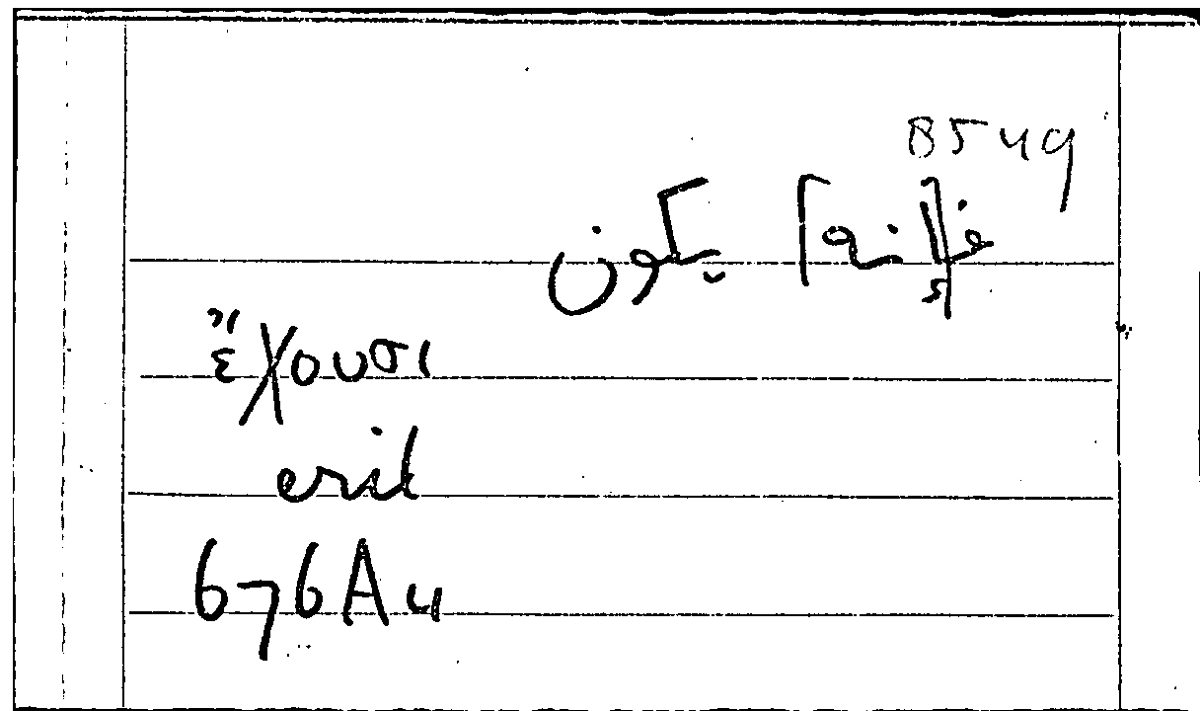 B549
ف[إنه] يكون
ἔχουσι
erit
676A4